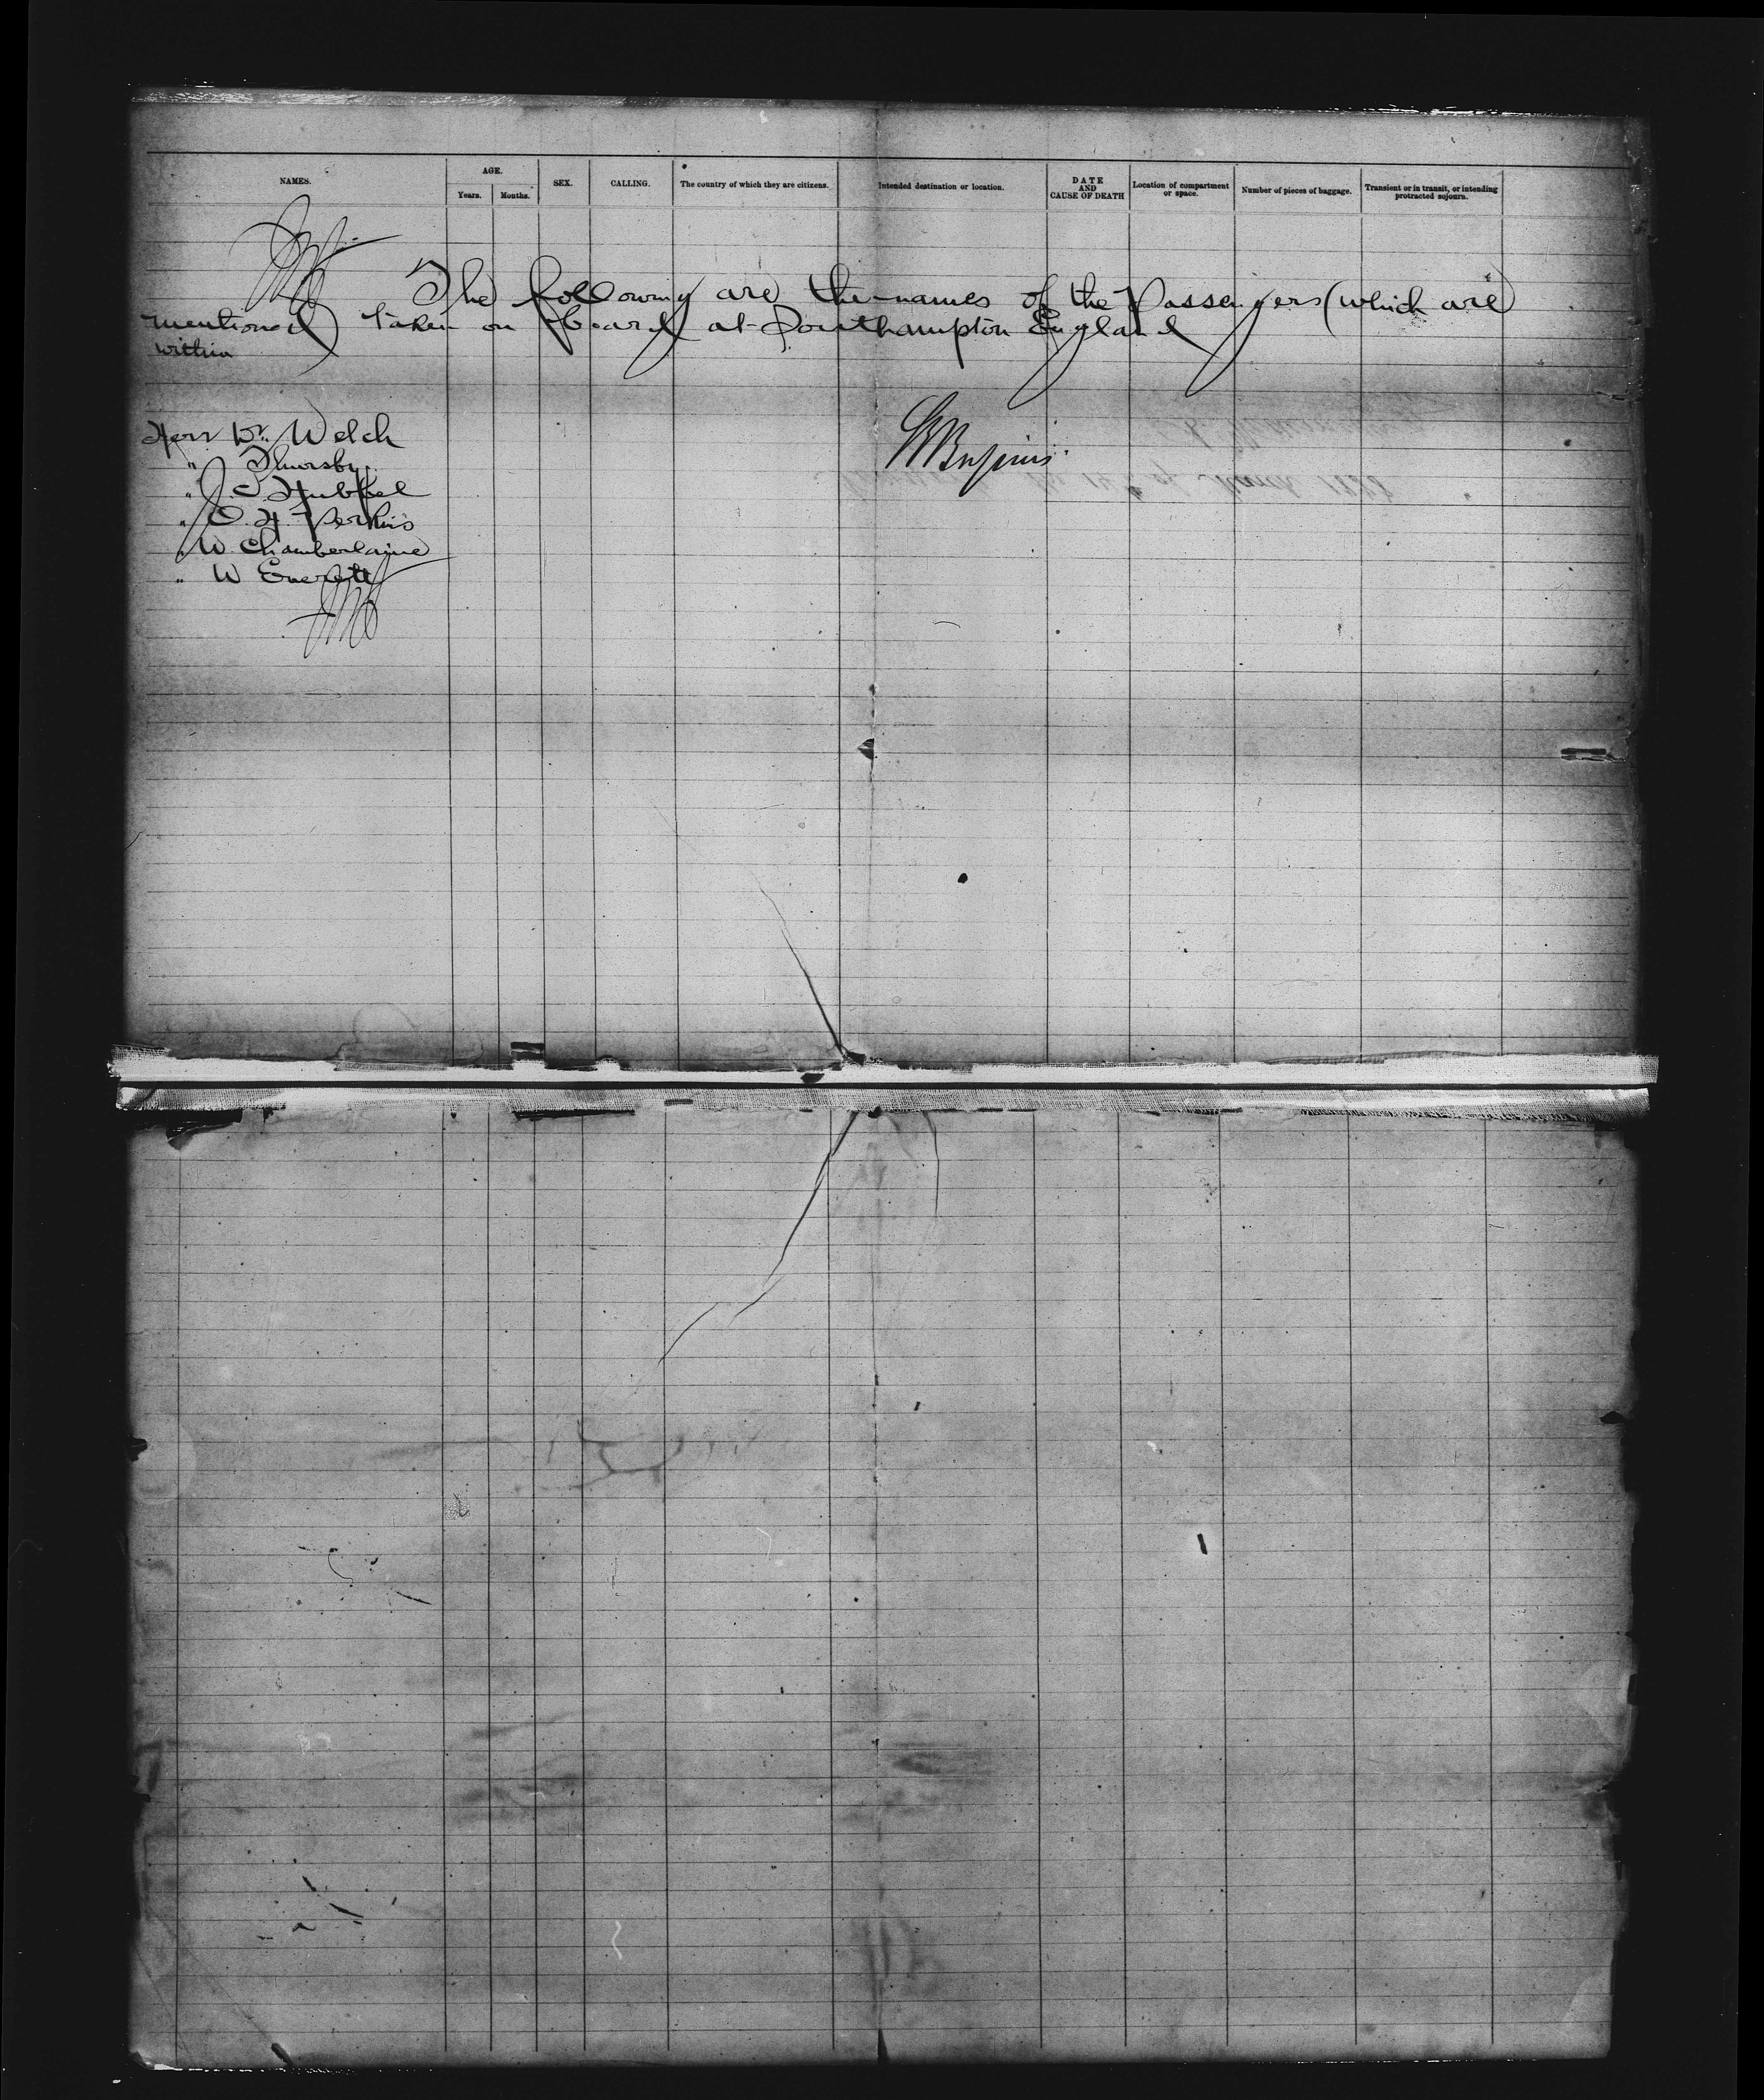 NAMES. AGE. SEX. CALLING. The country of which they are citizens. Intended destination or location. DATE AND CAUSE OF DEATH Location of compartment or space. Number of pieces of baggage. Transient or in transit, or intending protracted sojourn.
Years. Months.
The following are the names of the Passengers (which are
mentioned) taken on board at Southampton England
within
Herr Dr. Welch
" Thursby
" J. C. Hubbel
" C. H. Perkins
" W. Chamberlaine
" W Everett